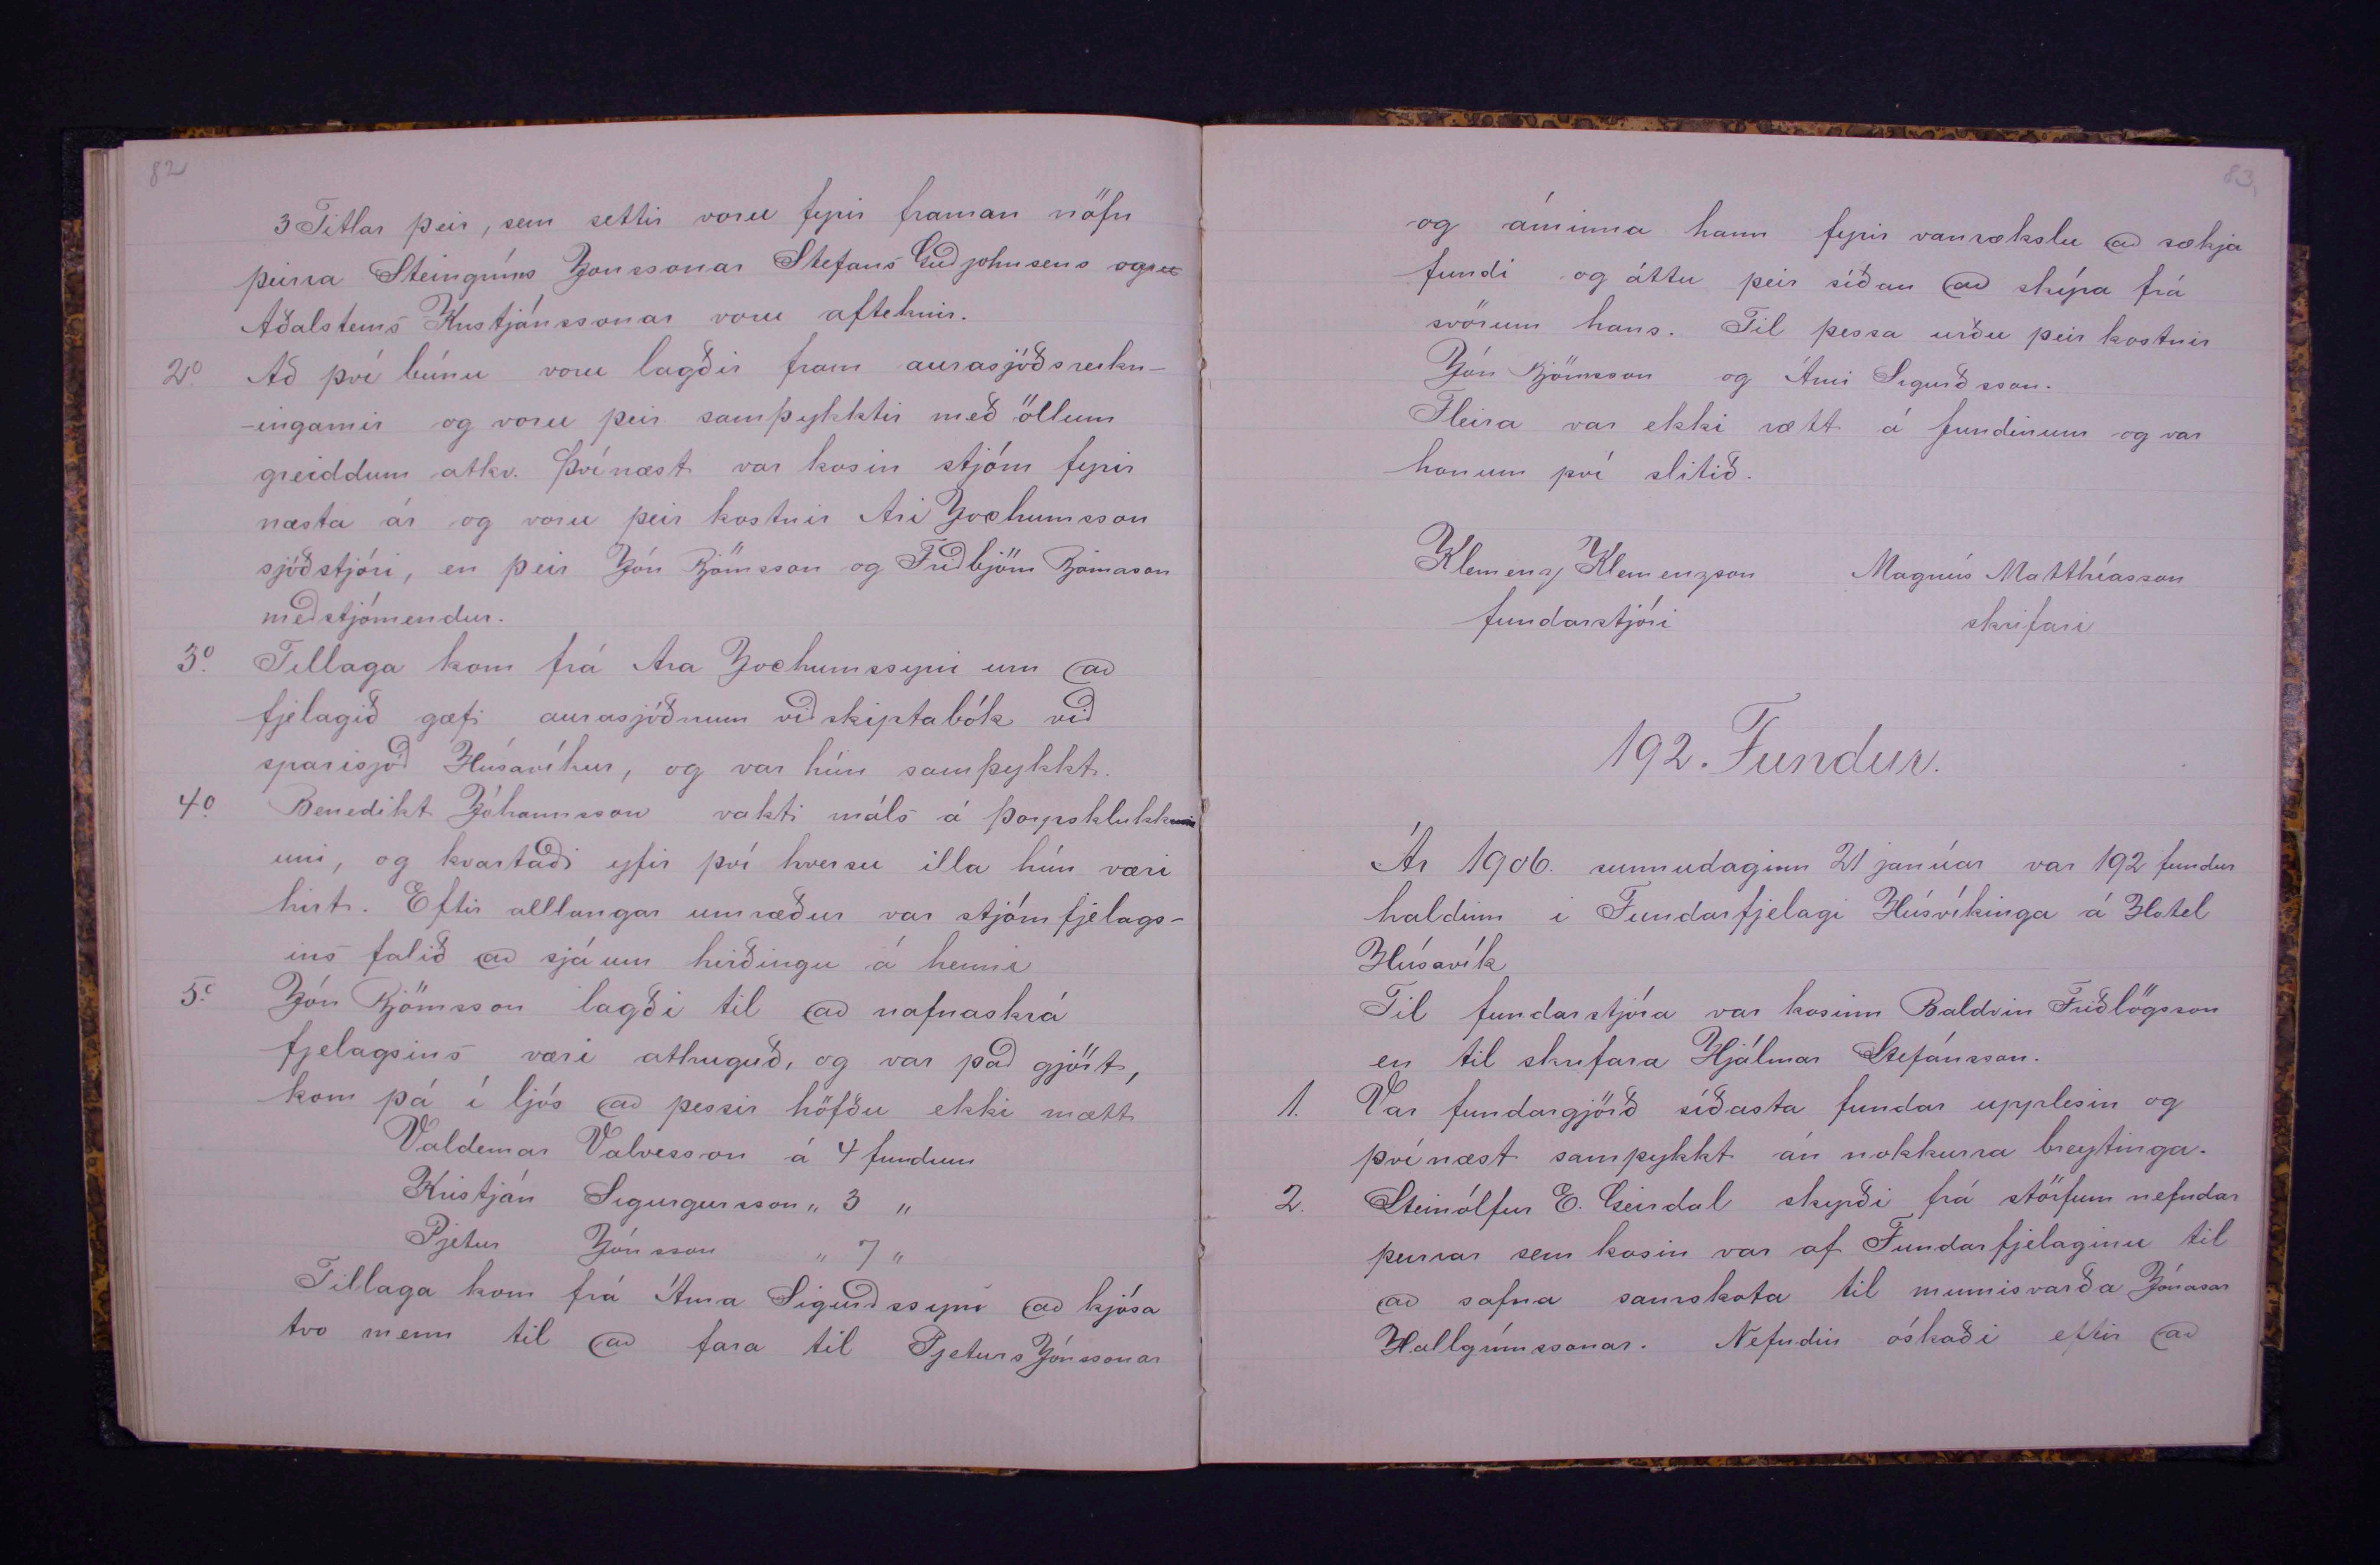 82
3 Titlar þeir, sem settir voru fyrir framan nöfn
þeirra Steingríms Jónssonar Stefans Guðjohnsens og
Aðalsteins Kristjánssonar voru afteknir.
2.o Að því búnu voru lagðir fram aurasjóðsreikn-
-ingarnir og voru þeir samþykktir með öllum
greiddum atkv. Þvínæst var kosin stjórn fyrir
næsta ár og voru þeir kostnir Ari Jochumsson
sjóðstjóri, en þeir Jón Björnsson og Friðbjörn Bjarnason
meðstjórnendur.
3.o Tillaga kom frá Ara Jochumssyni um að
fjelagið gæfi aurasjóðnum viðskiptabók við
sparisjóð Húsavíkur, og var hún samþykkt.
4.o Benedikt Jóhannsson vakti máls á þorpsklukk
uni, og kvartaði yfir því hversu illa hún væri
hirt. Eftir alllangar umræður var stjórn fjelags-
ins falið að sjá um hirðingu á henni
5.o Jón Björnsson lagði til að nafnaskrá
fjelagsins væri athuguð, og var það gjört,
kom þá í ljós að þessir höfðu ekki mætt
Valdemar Valvesson á 4 fundum
Kristján Sigurgursson „ 3 „
Pjetur Jónsson „ 7 „
Tillaga kom frá Árna Sigurðssyni að kjósa
tvo menn til að fara til Pjeturs Jónssonar
83
og áminna hann fyrir vanrækslu að sækja
fundi og áttu þeir síðan að skýra frá
svörum hans. Til þessa urðu þeir kostnir
Jón Björnsson og Árni Sigurðsson.
Fleira var ekki rætt á fundinum og var
honum því slitið.
Klemenz Klemenzson Magnús Matthíasson
fundarstjóri skrifari
192. Fundur.
Ár 1906. sunnudaginn 21 janúar var 192 fundur
haldinn i Fundarfjelagi Húsvíkinga á Hotel
Húsavík
Til fundarstjóra var kosinn Baldvin Friðlögsson
en til skrifara Hjálmar Stefánsson.
1. Var fundargjörð síðasta fundar upplesin og
þvínæst samþykkt án nokkurra breytinga.
2. Steinólfur E. Geirdal skyrði frá störfum nefndar
þeirrar sem kosin var af Fundarfjelaginu til
að safna samskota til minnisvarða Jónasar
Hallgrímssonar. Nefndin óskaði eftir að